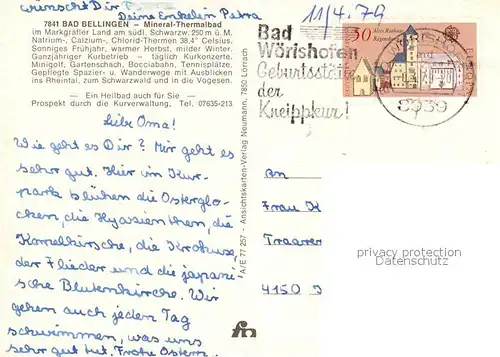 wünscht Dir P
Deine Enkelin Petra
7841 BAD BELLINGEN – Mineral-Thermalbad
im Markgräfler Land am südl. Schwarzw. 250 m ü. M.
Natrium-, Calzium-, Chlorid-Thermen 38,4° Celsius.
Sonniges Frühjahr, warmer Herbst, milder Winter.
Ganzjähriger Kurbetrieb – täglich Kurkonzerte.
Minigolf, Gartenschach, Bocciabahn, Tennisplätze.
Gepflegte Spazier- u. Wanderwege mit Ausblicken
ins Rheintal, zum Schwarzwald und in die Vogesen.
— Ein Heilbad auch für Sie —
Prospekt durch die Kurverwaltung, Tel. 07635-213
Liebe Oma!
Wie geht es Dir? Mir geht es
sehr gut. Hier im Kur-
park blühen die Osterglo-
cken, die Hyazienthen, die
Kornelkirsche, die Krokuse,
der Flieder und die japani-
sche Blutenkirche. Wir
gehen auch jeden Tag
schwimmen, was uns
sehr gut tut. Frohe Ostern
A/E 77 257 - Ansichtskarten-Verlag Neumann, 7850 Lörrach
11/4. 79
Bad
Wörishofen
Geburtsstätte
der
Kneippkur!
30
Altes Rathaus
8939
An
Frau K
Traarer
4150
privacy protection
Datenschutz